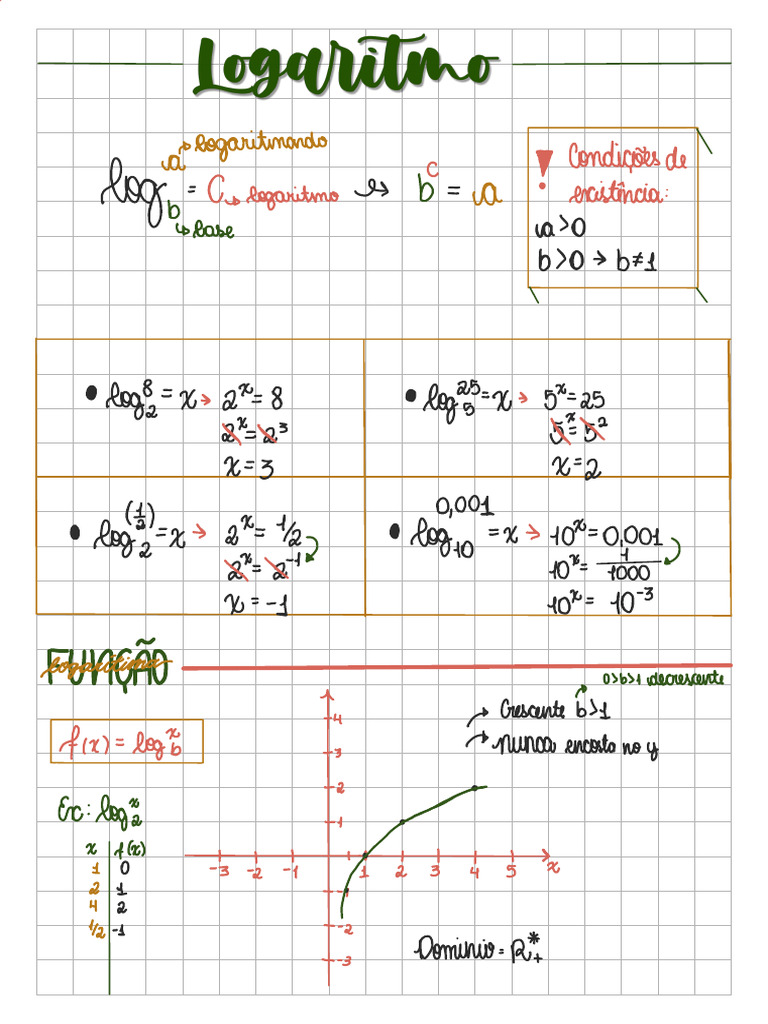 Logaritmo
log_b^a = C ↪ b^C = a
logaritmando
logaritmo
base
! Condições de
existência:
a>0
b>0 → b≠1
• log_2^8 = x → 2^x = 8
2^x = 2^3
x = 3
• log_5^25 = x → 5^x = 25
5^x = 5^2
x = 2
• log_2^(1/2) = x → 2^x = 1/2
2^x = 2^-1
x = -1
• log_10^0,001 = x → 10^x = 0,001
10^x = 1/1000
10^x = 10^-3
FUNÇÃO
logaritima
0>b>1 decrescente
Crescente b>1
nunca encosta no y
f(x) = log_b^x
Ex: log_2^x
x f(x)
1 0
2 1
4 2
1/2 -1
4
3
2
1
-3 -2 -1 1 2 3 4 5 x
-1
-2
-3
Dominio = R_+^*